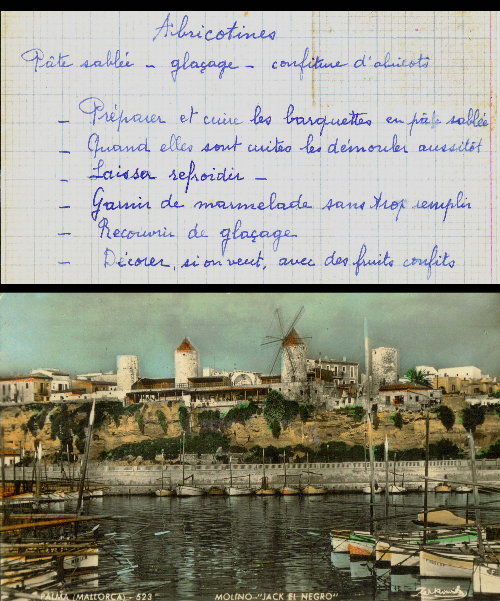 Abricotines
Pâte sablée - glaçage - confiture d'abricots
- Préparer et cuire les barquettes en pâte sablée
- Quand elles sont cuites les démouler aussitôt
- Laisser refroidir -
- Garnir de marmelade sans trop remplir
- Recouvrir de glaçage
- Décorer, si on veut, avec des fruits confits
PALMA (MALLORCA) - 523
MOLINO "JACK EL NEGRO"